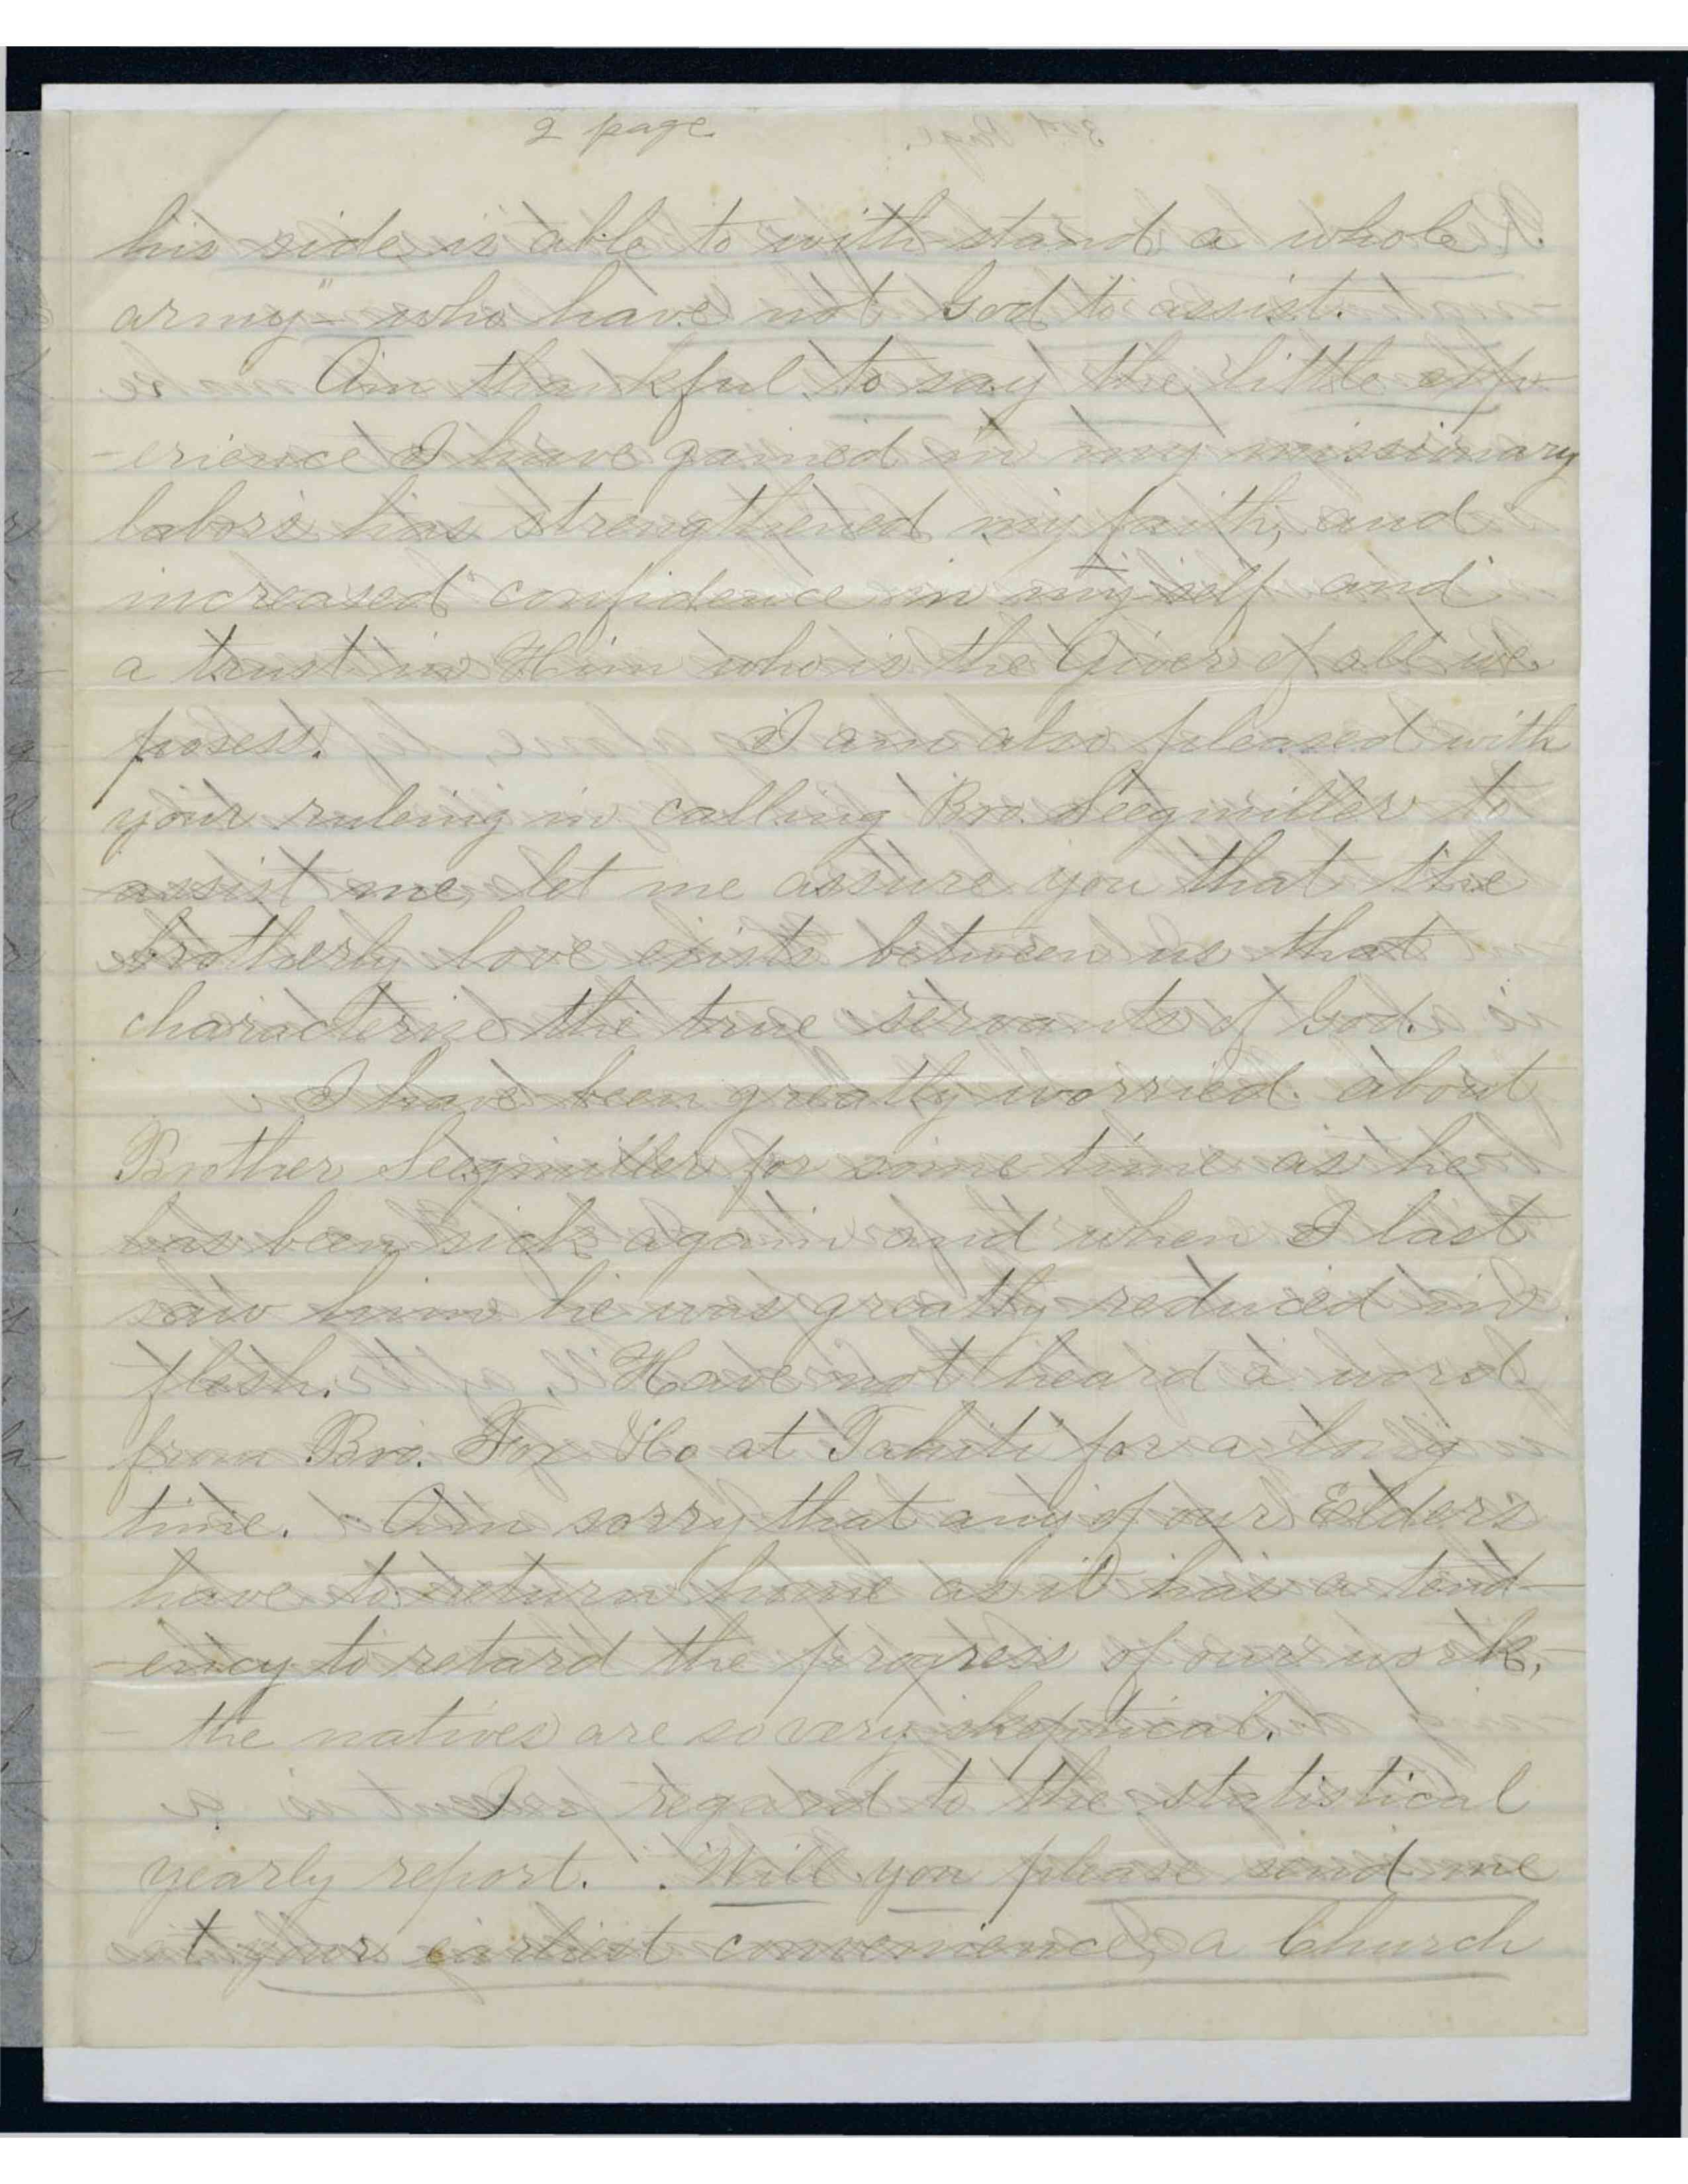 2 page
his side is able to with-stand a whole
army" - who have not God to assist.
Am thankful to say the little exp-
-erience I have gained in my missionary
labors has strengthened my faith, and
increased confidence in myself and
a trust in Him who is the Giver of all we
posess. I am also pleased with
your ruleing in calling Bro. Seegmiller to
assist me, let me assure you that the
brotherly love exists between us that
characterize the true servants of God.
I have been greatly worried about
Brother Seegmiller for some time as he
has been sick again and when I last
saw him he was greatly reduced in
flesh. Have not heard a word
from Bro. at Tahiti for a long
time. Am sorry that any of our Elders
have to return home as it has a tend-
-ency to retard the progress of our work,
- the natives are so very skeptical.
I regard to the statistical
yearly report. Will you please send me
at your earliest convenience, a Church